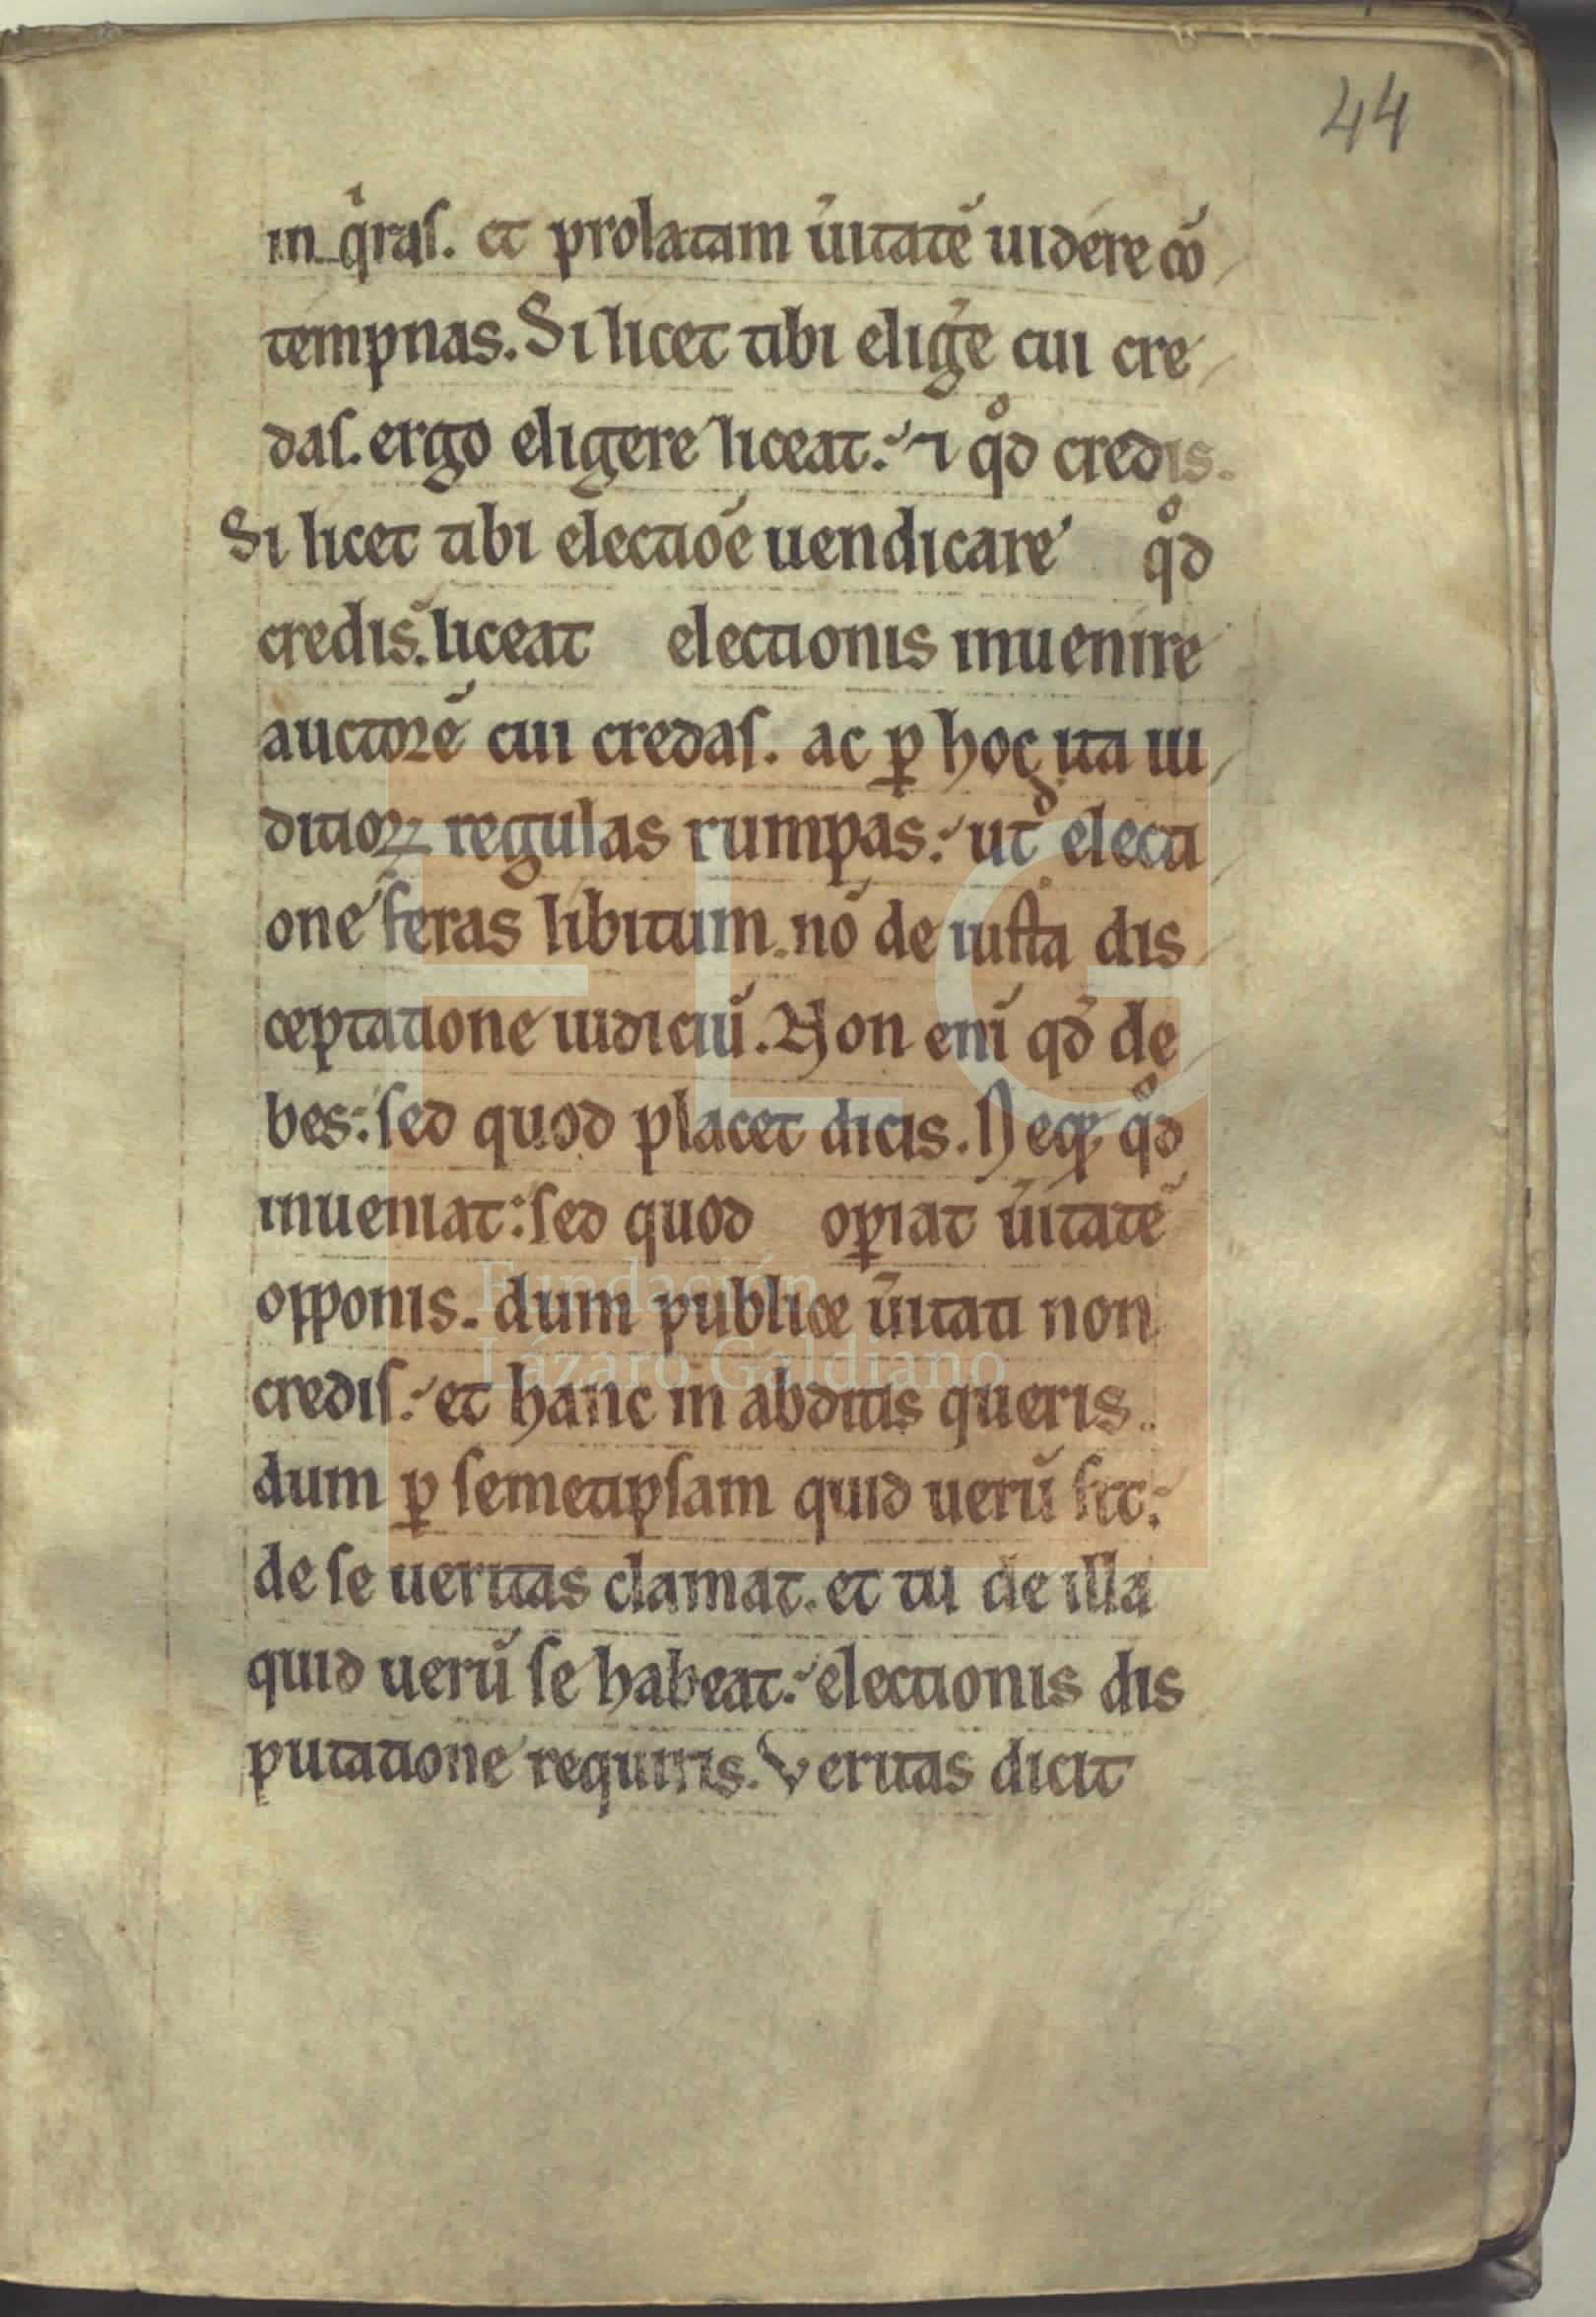 44
in qͥras. et prolatam ũitatẽ uidere cõ
tempnas. Si licet tibi elig̃e cui cre
das. ergo eligere liceat: ⁊ qͦd credis.
Si licet tibi electiõe uendicare qͦd
credis. liceat electionis inuenire
auctorẽ cui credas. ac ꝑ hoc ita iu
ditioꝝ regulas rumpas: ut electi
one feras libitum. nõ de iusta dis
ceptatione iudiciũ. Non eni᷃ qd̃ de
bes: sed quod placet dicis. Neqꝫ qͦd
inueniat: sed quod oꝑiat ũitatẽ
opponis. dum publice ũitati non
credis: et hanc in abditis queris.
dum ꝑ semetipsam quid uerũ sit:
de se ueritas clamat. et tu de illa
quid uerũ se habeat: electionis dis
putatione requiris. Veritas dicit
FLG
Fundación
Lázaro Galdiano